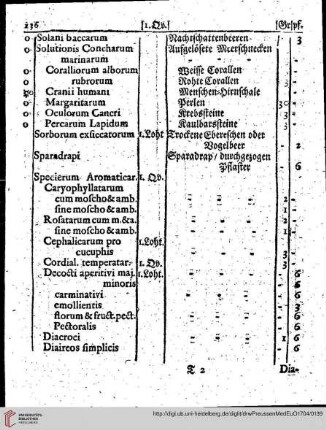 236 |1.Qv.| |Gr|pf.
o Solani baccarum Nachtschattenbeeren- 3
o Solutionis Concharum Aufgelösete Meerschnecken
marinarum
o Coralliorum alborum Weisse Corallen
rubrorum Rohte Corallen
Cranii humani Menschen-Hirnschale
o Margaritarum Perlen
o Oculorum Cancri Krebssteine
o Percarum Lapidum Kaulbarssteine
Sorborum exsiccatorum 1.Loht Trockene Ebereschen oder
Vogelbeer - 2
Sparadrapi Sparadrap/durchgezogen
Pflaster - 6
Specierum Aromaticar. 1. Qv.
Caryophyllatarum
cum moscho & amb. 2
sine moscho & amb. 1
Rosatarum cum m. & a. 2
sine moscho & amb. 1
Cephalicarum pro 1.Loht.
cucuphis 3
Cordial. temperatar. 1. Qv. 3
Decocti aperitivi maj. 1.Loht. 6
minoris 6
carminativi 6
emollientis 3
florum & fruct. pect. 6
Pectoralis 6
Diacroci 1
Diaireos simplicis 6
2 Dia-
http://digi.ub.uni-heidelberg.de/diglit/drwPreussenMedEuO1704/0199